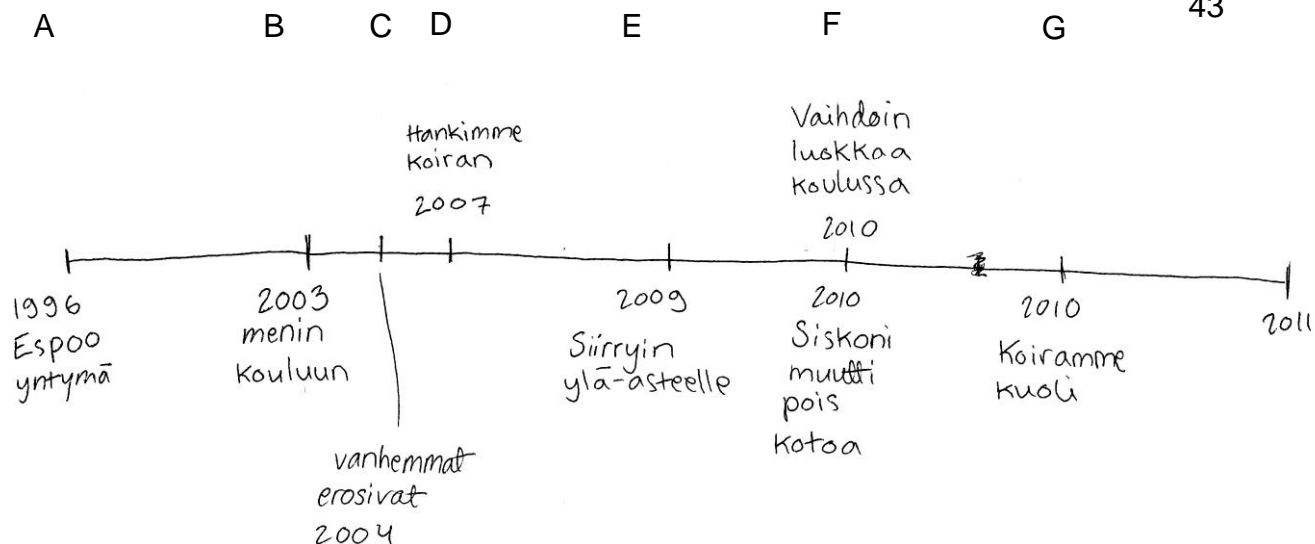 43
A B C D E F G
Hankimme
koiran
2007
Vaihdoin
luokkaa
koulussa
2010
1996
Espoo
yntymä
2003
menin
kouluun
vanhemmat
erosivat
2004
2009
Siirryin
ylä-asteelle
2010
Siskoni
muutti
pois
kotoa
2010
Koiramme
kuoli
2011